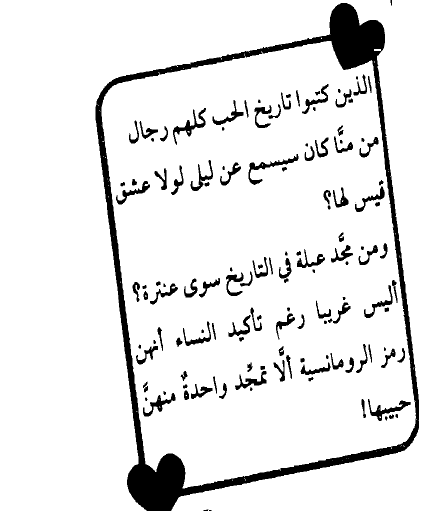 الذين كتبوا تاريخ الحب كلهم رجال
من منَّا كان سيسمع عن ليلى لولا عشق
قيس لها؟
ومن مجَّد عبلة في التاريخ سوى عنترة؟
أليس غريبا رغم تأكيد النساء أنهن
رمز الرومانسية ألَّا تمجِّد واحدةٌ منهنَّ
حبيبها!